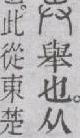 舉也。从
此從東楚